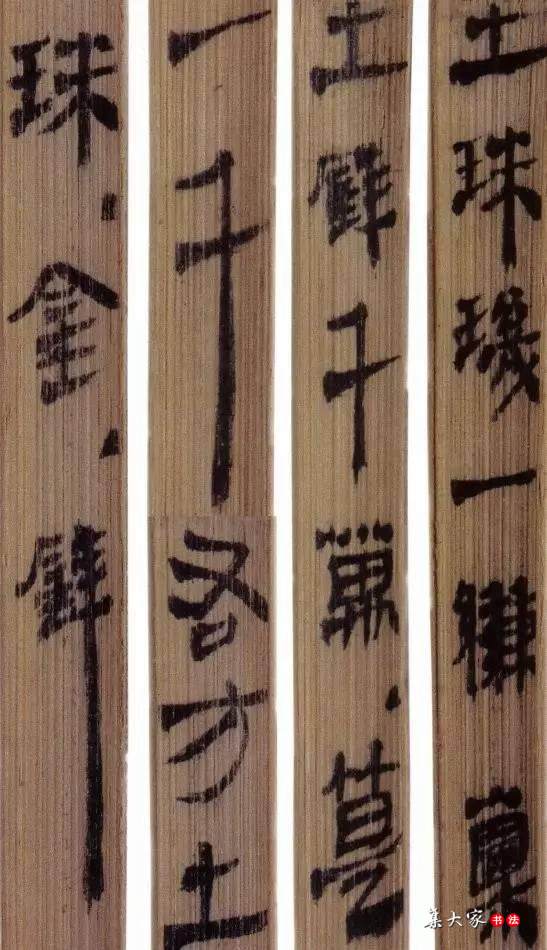 土珠璣一縑囊
土錢千萬、
一千
右方土
珠、金、錢
集大家 书法